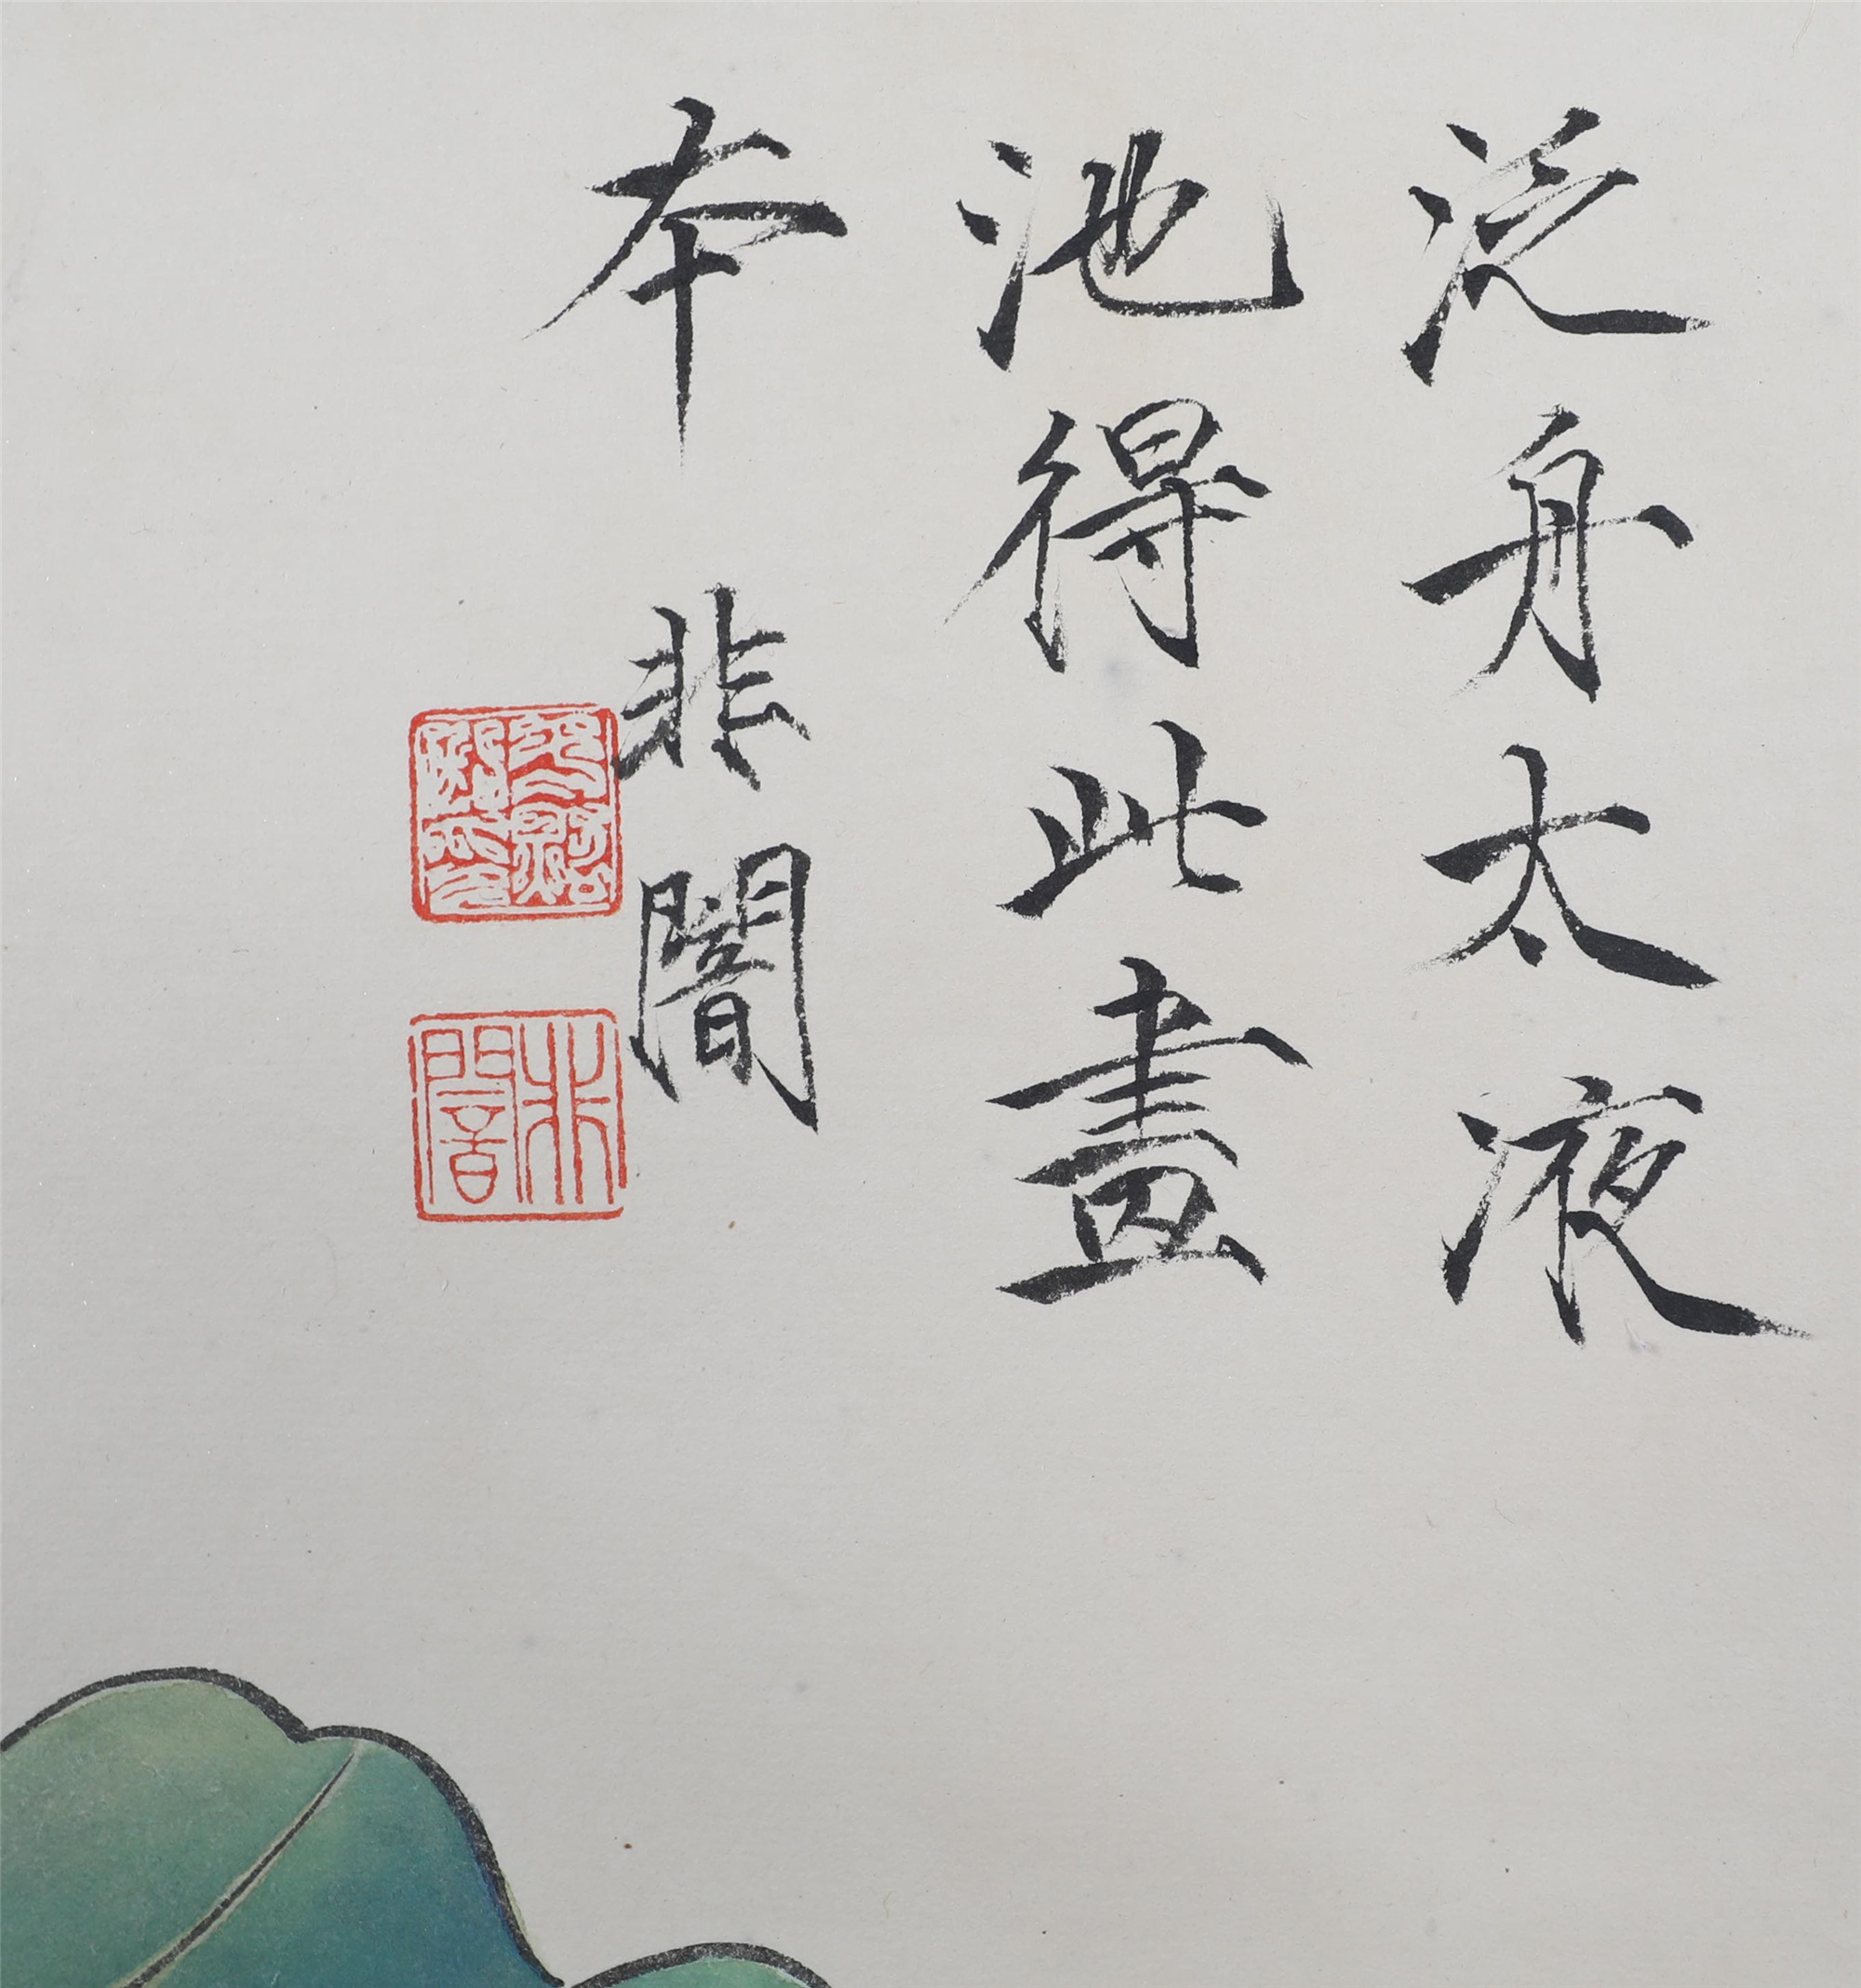 泛舟太液
池得此畫
本 非闇
非闇